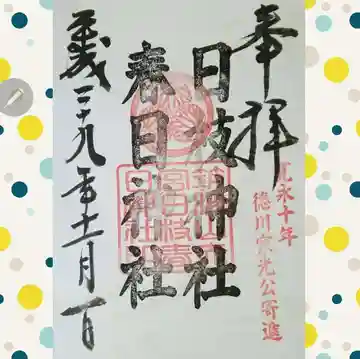 奉拝
寛永十年
徳川家光公寄進
日枝神社
春日神社
平成二十九年十一月一日